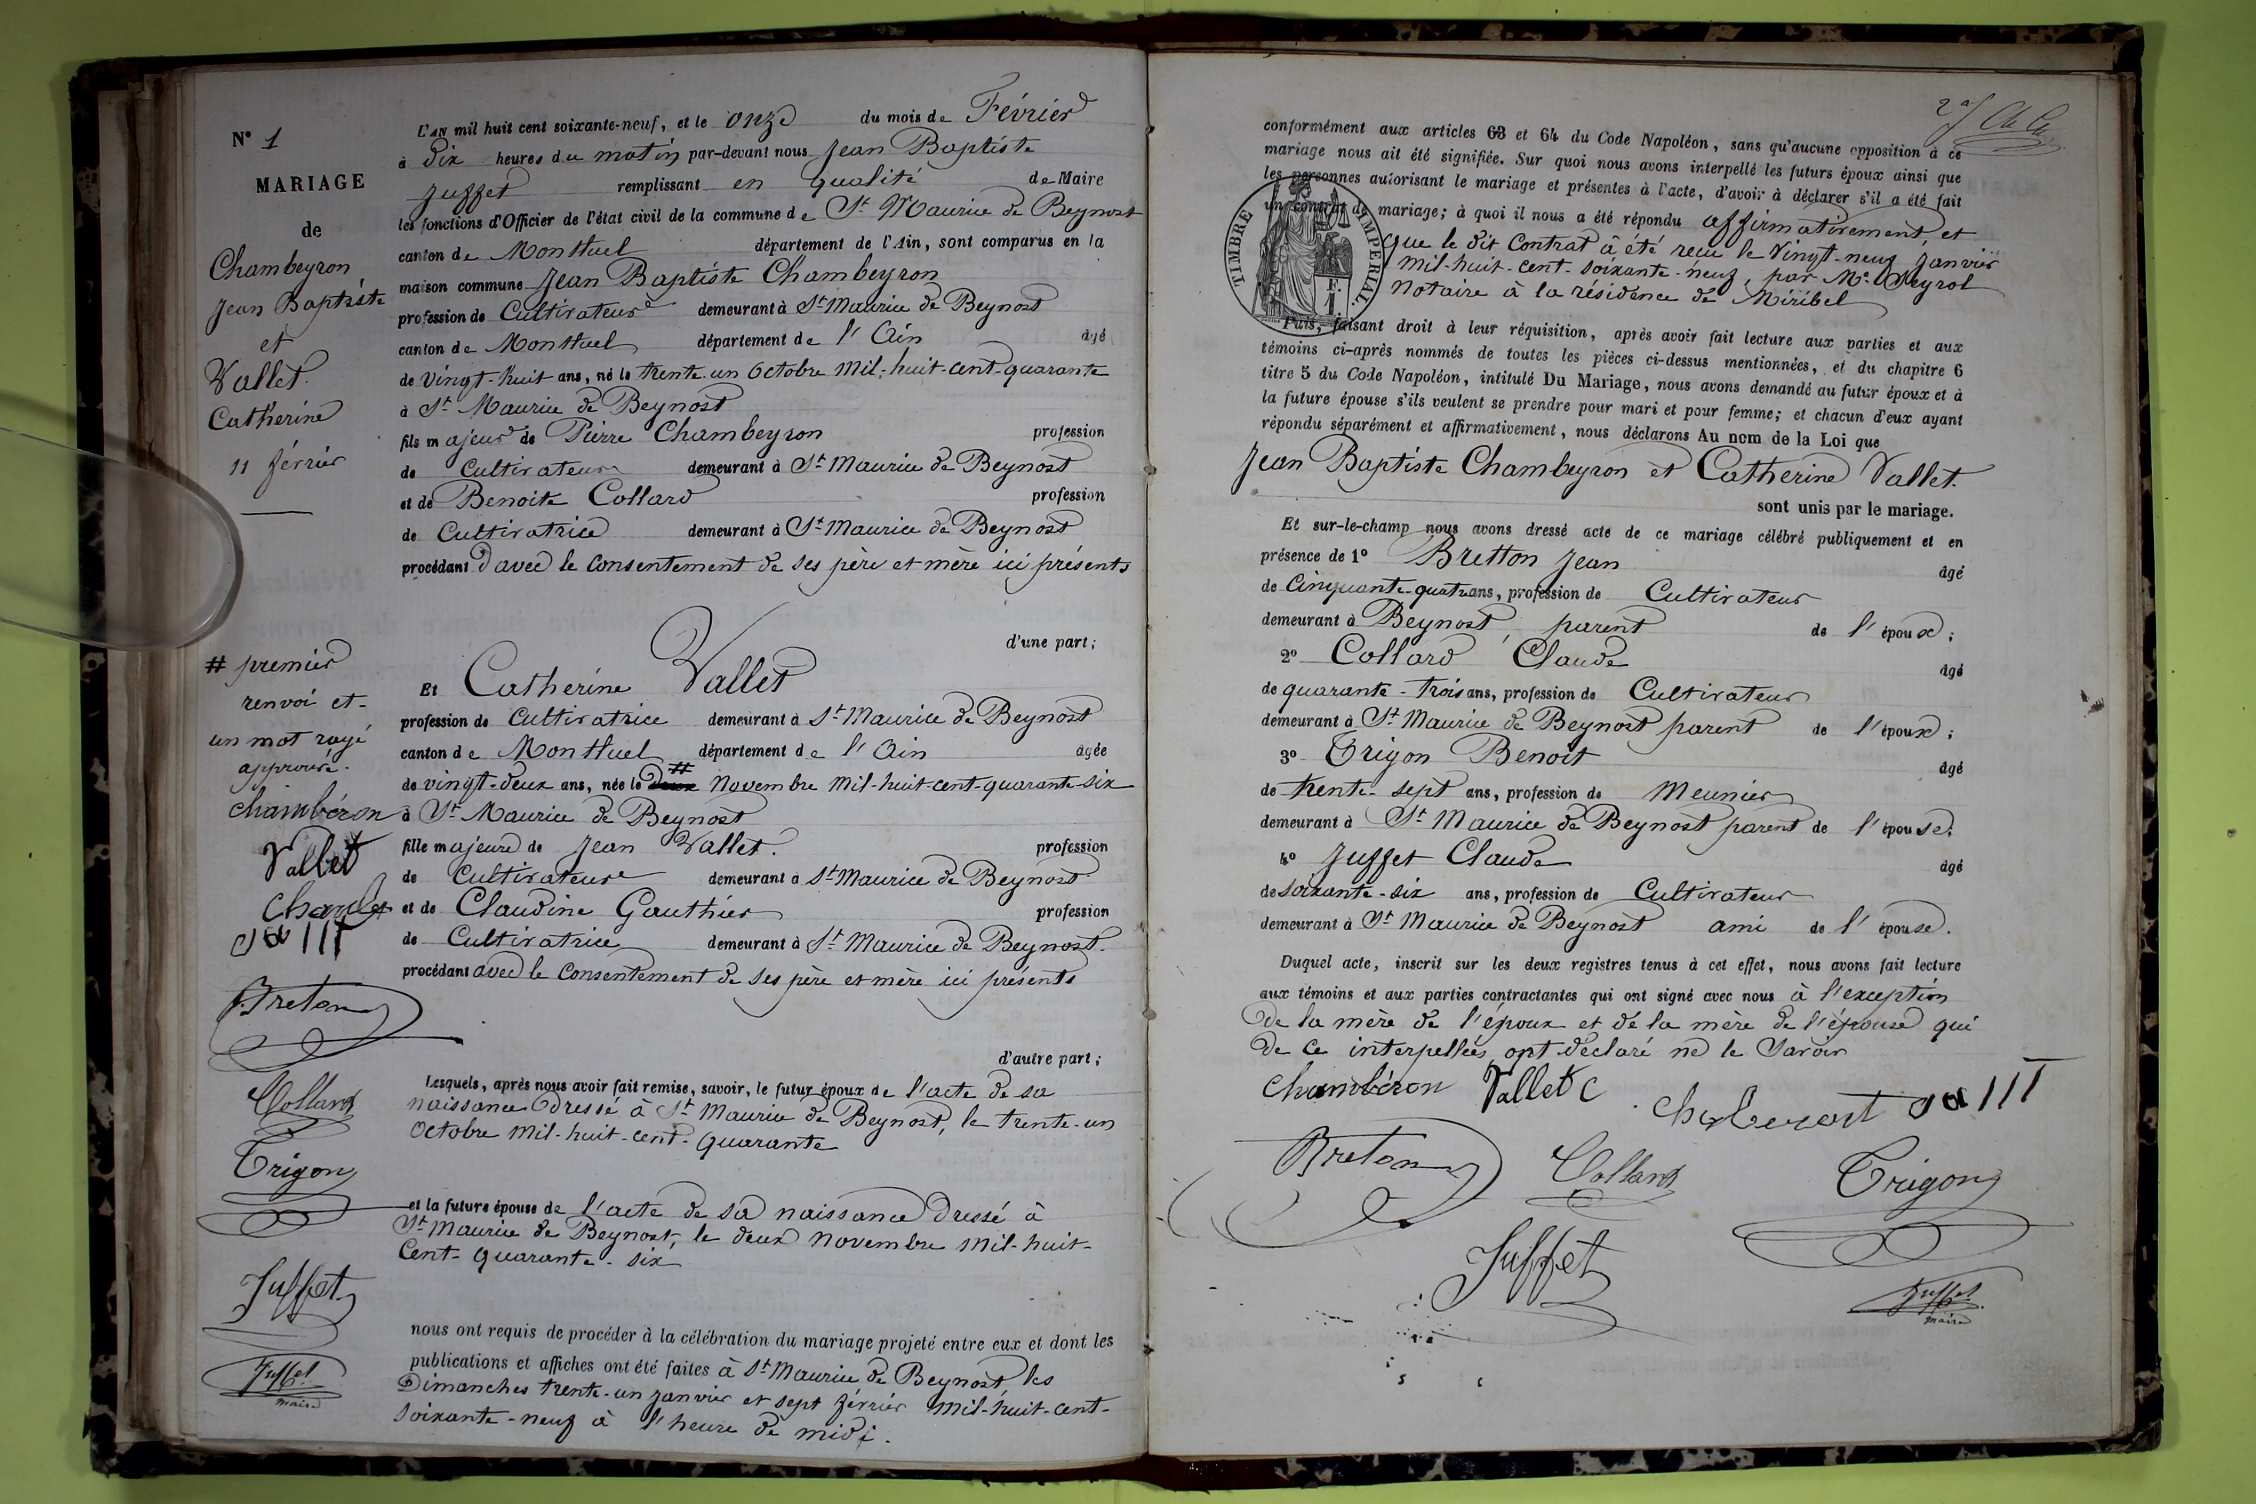 N° 1
MARIAGE
de
Chambeyron
Jean Baptiste
et
Vallet
Catherine
11 février
# premier
renvoi et
un mot rayé
approuvé.
Chambéron
Vallet
Breton
Collard
Trigon
Juffet
Juffet
maire
L'AN mil huit cent soixante-neuf, et le onze du mois de Février
à Dix heures du matin par-devant nous Jean Baptiste
Juffet remplissant en qualité de Maire
les fonctions d'Officier de l'état civil de la commune de St Maurice de Beynost
canton de Montluel département de l'Ain, sont comparus en la
maison commune Jean Baptiste Chambeyron
profession de Cultivateur demeurant à St Maurice de Beynost
canton de Montluel département de l'Ain âgé
de vingt-huit ans, né le trente-un Octobre mil-huit-cent-quarante
à St Maurice de Beynost
fils majeur de Pierre Chambeyron profession
de Cultivateur demeurant à St Maurice de Beynost
et de Benoite Collard profession
de Cultivatrice demeurant à St Maurice de Beynost
procédant avec le consentement de ses père et mère ici présents
d'une part;
Et Catherine Vallet
profession de Cultivatrice demeurant à St Maurice de Beynost
canton de Montluel département de l'Ain âgée
de vingt-deux ans, née le # Novembre mil-huit-cent-quarante-six
à St Maurice de Beynost
fille majeure de Jean Vallet. profession
de Cultivateur demeurant à St Maurice de Beynost
et de Claudine Gauthier profession
de Cultivatrice demeurant à St Maurice de Beynost.
procédant avec le consentement de ses père et mère ici présents
d'autre part;
Lesquels, après nous avoir fait remise, savoir, le futur époux de l'acte de sa
naissance dressé à St Maurice de Beynost, le trente-un
Octobre mil-huit-cent-quarante
et la future épouse de l'acte de sa naissance dressé à
St Maurice de Beynost, le deux novembre mil-huit-
cent-quarante-six
nous ont requis de procéder à la célébration du mariage projeté entre eux et dont les
publications et affiches ont été faites à St Maurice de Beynost les
Dimanches trente-un janvier et sept février mil-huit-cent-
soixante-neuf à l'heure de midi.
conformément aux articles 63 et 64 du Code Napoléon, sans qu'aucune opposition à ce
mariage nous ait été signifiée. Sur quoi nous avons interpellé les futurs époux ainsi que
les personnes autorisant le mariage et présentes à l'acte, d'avoir à déclarer s'il a été fait
un contrat de mariage; à quoi il nous a été répondu affirmativement, et
TIMBRE IMPÉRIAL.
que le dit Contrat à été reçu le vingt-neuf janvier
mil-huit-cent-soixante-neuf, par Me Peyrol
Notaire à la résidence de Miribel
Puis, faisant droit à leur réquisition, après avoir fait lecture aux parties et aux
témoins ci-après nommés de toutes les pièces ci-dessus mentionnées, et du chapitre 6
titre 5 du Code Napoléon, intitulé Du Mariage, nous avons demandé au futur époux et à
la future épouse s'ils veulent se prendre pour mari et pour femme; et chacun d'eux ayant
répondu séparément et affirmativement, nous déclarons Au nom de la Loi que
Jean Baptiste Chambeyron et Catherine Vallet.
sont unis par le mariage.
Et sur-le-champ nous avons dressé acte de ce mariage célébré publiquement et en
présence de 1° Bretton Jean âgé
de Cinquante-quatre ans, profession de Cultivateur
demeurant à Beynost, parent de l'époux;
2° Collard Claude âgé
de quarante-trois ans, profession de Cultivateur
demeurant à St Maurice de Beynost parent de l'époux;
3° Trigon Benoit âgé
de trente-sept ans, profession de Meunier
demeurant à St Maurice de Beynost parent de l'épouse;
4° Juffet Claude âgé
de soixante-six ans, profession de Cultivateur
demeurant à St Maurice de Beynost ami de l'épouse.
Duquel acte, inscrit sur les deux registres tenus à cet effet, nous avons fait lecture
aux témoins et aux parties contractantes qui ont signé avec nous à l'exception
de la mère de l'époux et de la mère de l'épouse qui
de ce interpellées ont déclaré ne le savoir
Chambéron Vallet C
Breton Collard Trigon
Juffet
Juffet
maire